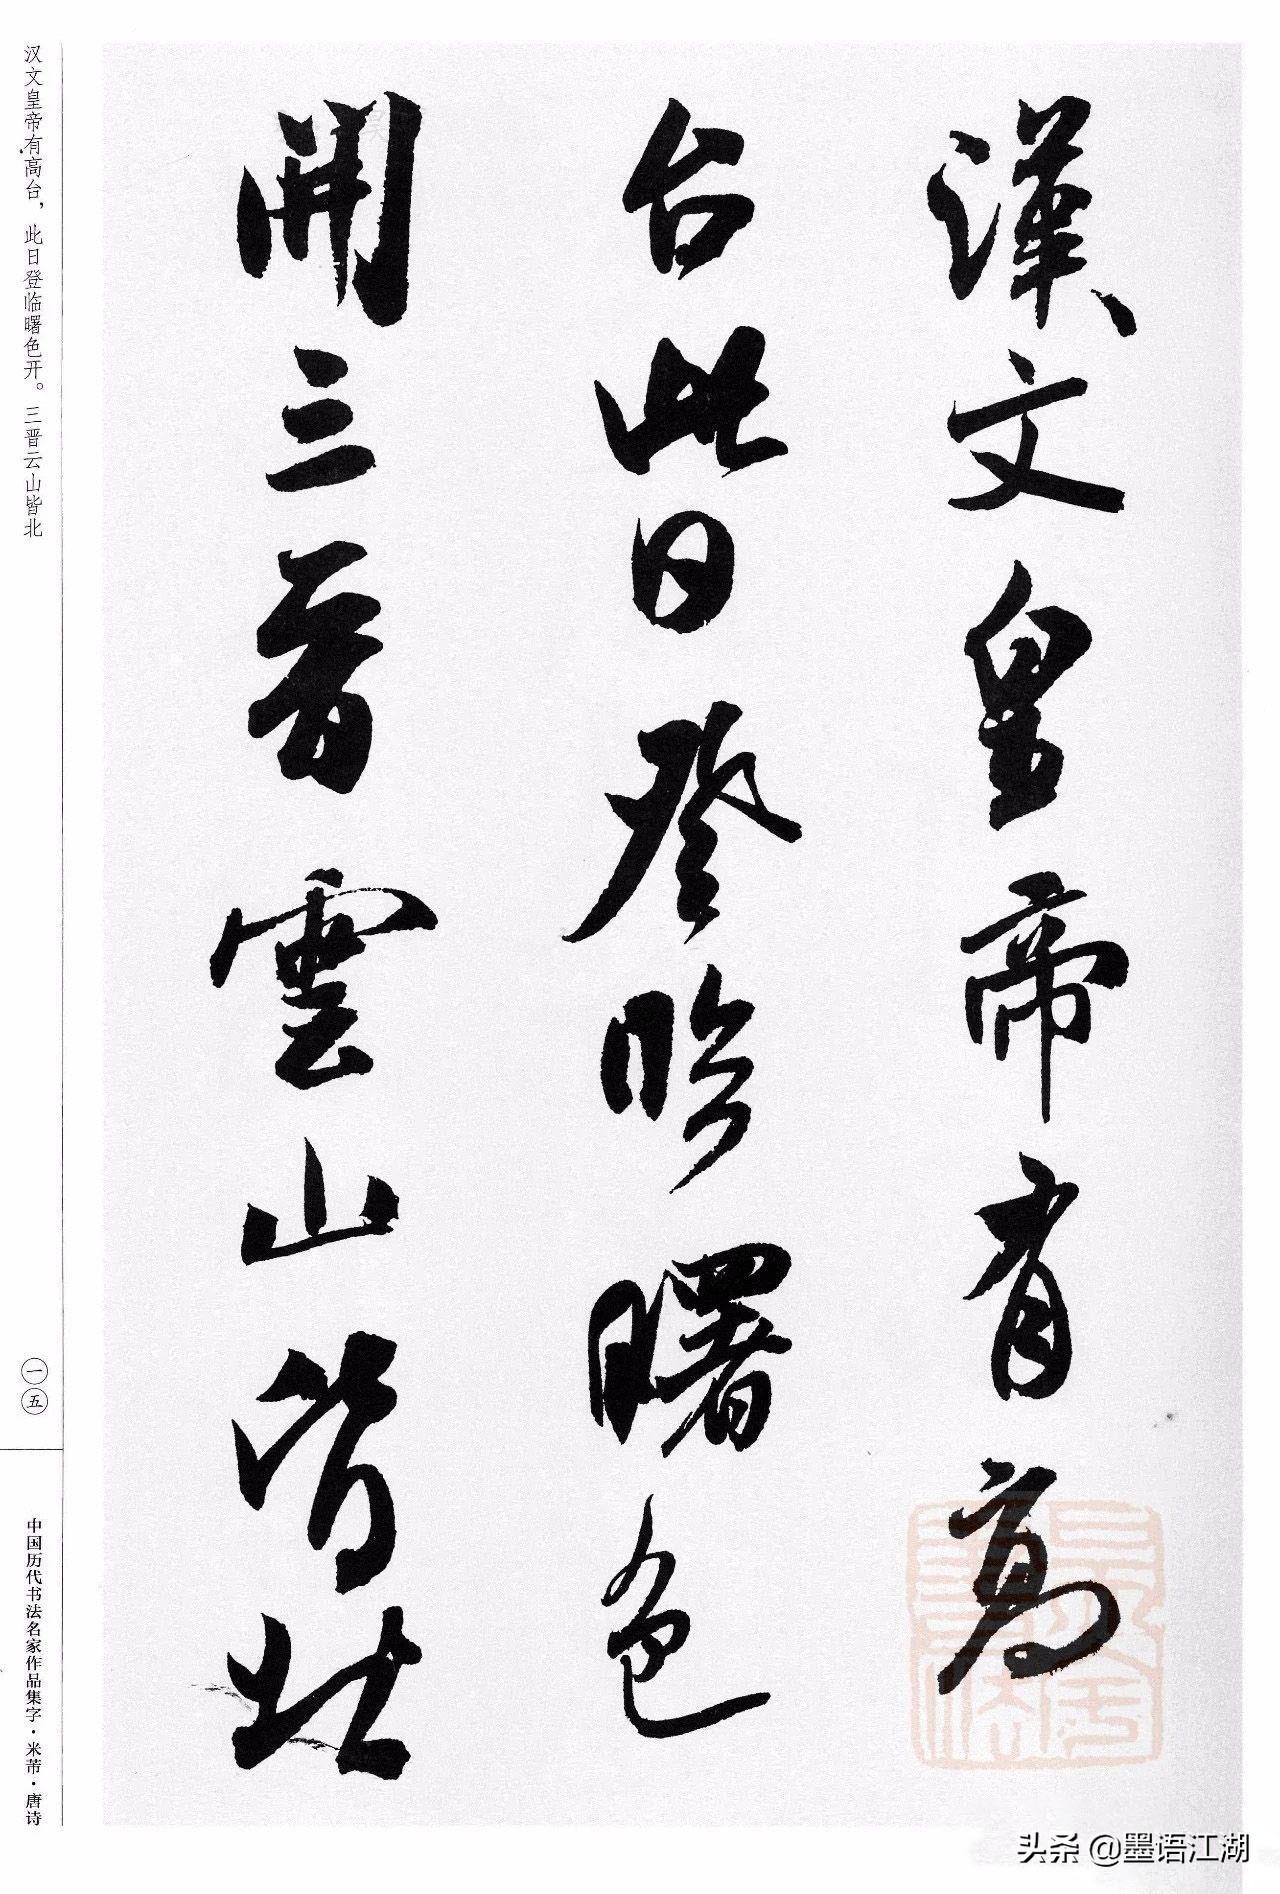 漢文皇帝有高
台此日登临曙色
開三晋雲山皆北
汉文皇帝有高台，此日登临曙色开。三晋云山皆北
一五
中国历代书法名家作品集字·米芾·唐诗
头条 @墨语江湖